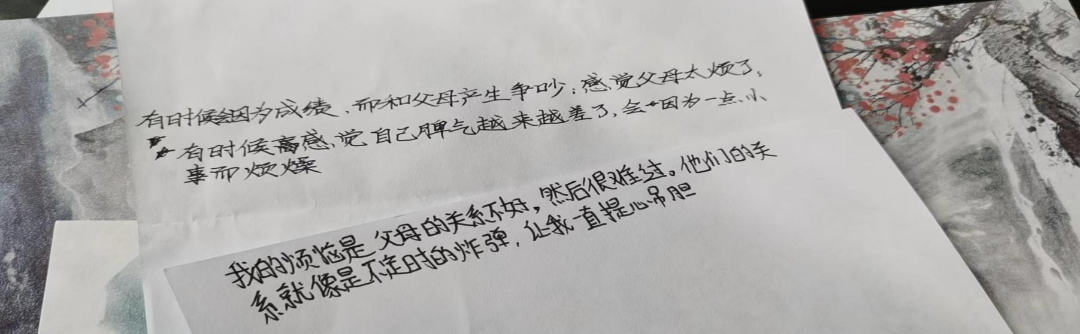 有时候会因为成绩、而和父母产生争吵；感觉父母太烦了。
有时候感觉自己脾气越来越差了，会因为一点小
事而烦燥
我的烦恼是父母的关系不好，然后很难过。他们的关
系就像是不定时的炸弹，让我一直提心吊胆